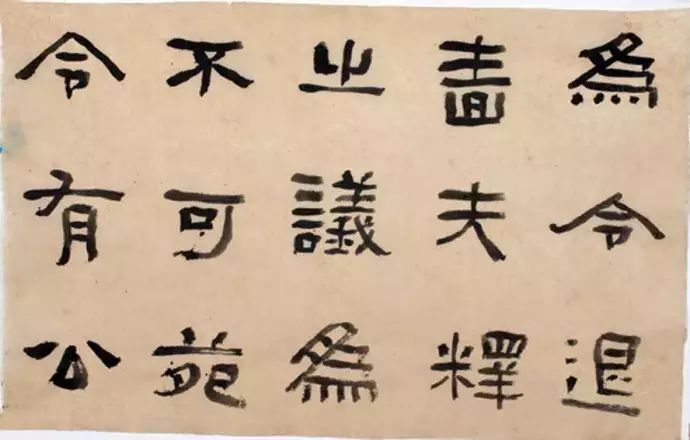 為令退
嗇夫釋
之議為
不可苑
令有公